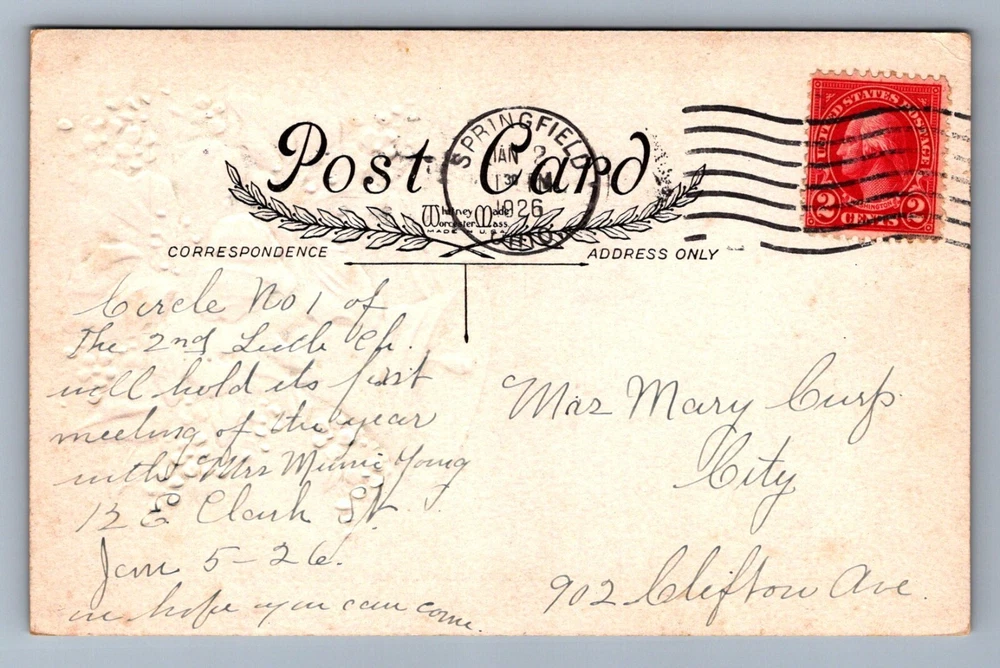 Post Card
SPRINGFIELD
JAN 2
1 30 PM
1926
OHIO
Whitney Made
Worcester Mass
MADE IN U.S.A.
UNITED STATES POSTAGE
WASHINGTON
2 CENTS 2
CORRESPONDENCE
ADDRESS ONLY
Circle No 1 of
The 2nd Luth Ch.
will hold its first
meeting of the year
with Mrs Minnie Young
12 E Clark St
Jan 5-26.
we hope you can come.
Mrs Mary Curp
City
902 Clifton Ave.